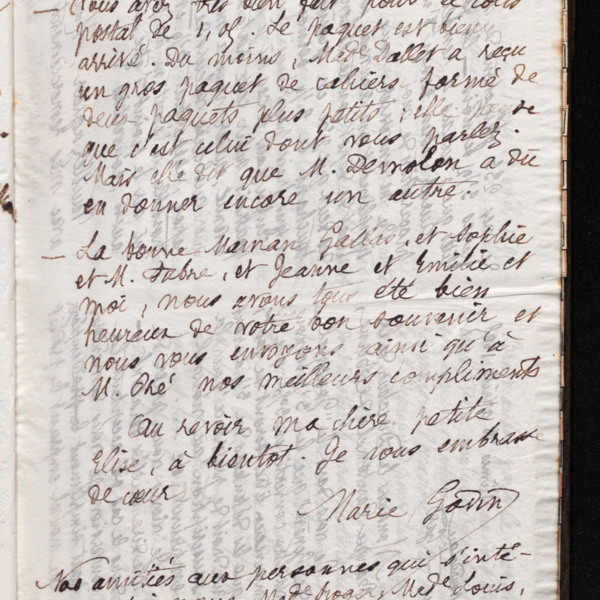 — Vous avez très bien fait pour le colis
postal de 1,05. Le paquet est bien
arrivé. Du moins, Made Dallet a reçu
un gros paquet de cahiers formé de
deux paquets plus petits ; elle pense
que c'est celui dont vous parlez.
Mais elle dit que M. Demolon a dû
en donner encore un autre.
— La bonne Maman Gallas, et Sophie
et M. Fabre, et Jeanne et Emilie et
moi, nous avons tous été bien
heureux de votre bon souvenir et
nous vous envoyons ainsi qu'à
M. Pré nos meilleurs compliments
Au revoir ma chère petite
Elise, à bientot. Je vous embrasse
de cœur
Marie Godin
Nos amitiés aux personnes qui s'inté-
nous Made Roger, Made Louis,